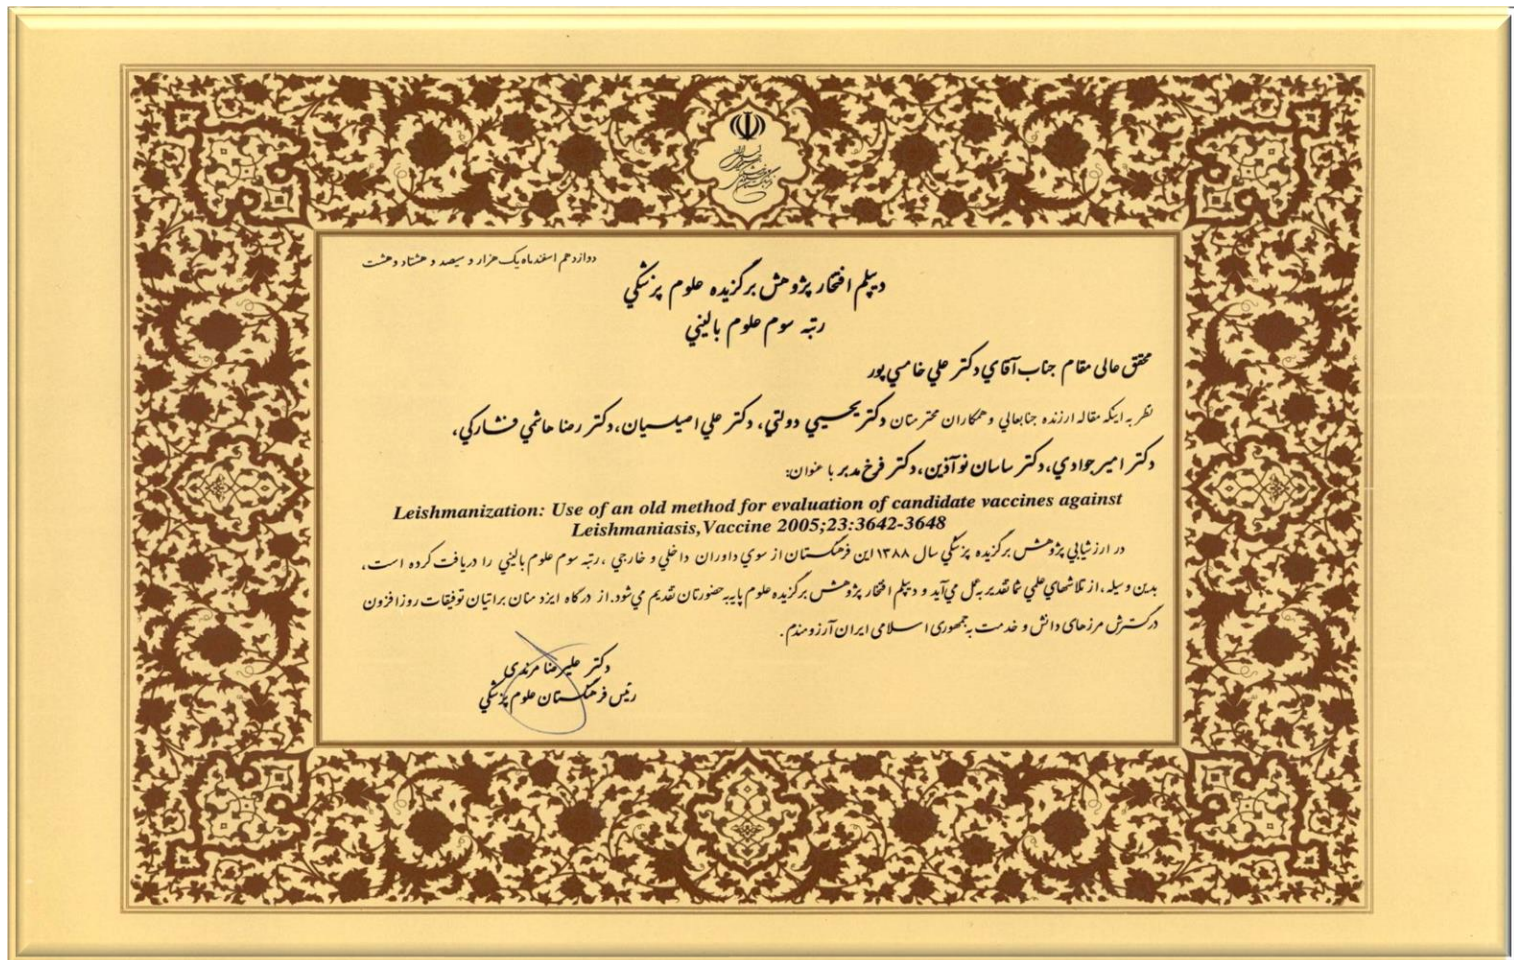 دوازدهم اسفندماه یک هزار و سیصد و هشتاد و هشت
دیپلم افتخار پژوهش برگزیده علوم پزشکي
رتبه سوم علوم بالیني
محقق عالی مقام جناب آقاي دکتر علي خامسي پور
نظر به اینکه مقاله ارزنده جنابعالي و همکاران محترمتان دکتر یحیي دولتي، دکتر علي امیلسیان، دکتر رضا هاشمي فشارکي،
دکتر امیر جوادي، دکتر ساسان نوآذین، دکتر فرخ مدبر با عنوان:
Leishmanization: Use of an old method for evaluation of candidate vaccines against
Leishmaniasis,Vaccine 2005;23:3642-3648
در ارزشیابي پژوهش برگزیده پزشکي سال ۱۳۸۸ این فرهنگستان از سوي داوران داخلي و خارجي ، رتبه سوم علوم بالیني را دریافت کرده است،
بدین وسیله ، از تلاشهاي علمي شما تقدیر به عمل مي‌آید و دیپلم افتخار پژوهش برگزیده علوم پایه به حضورتان تقدیم مي‌شود. از درگاه ایزد منان برایتان توفیقات روزافزون
در گسترش مرزهای دانش و خدمت به جمهوری اسلامی ایران آرزومندم.
دکتر علیرضا مرندی
رئیس فرهنگستان علوم پزشکي